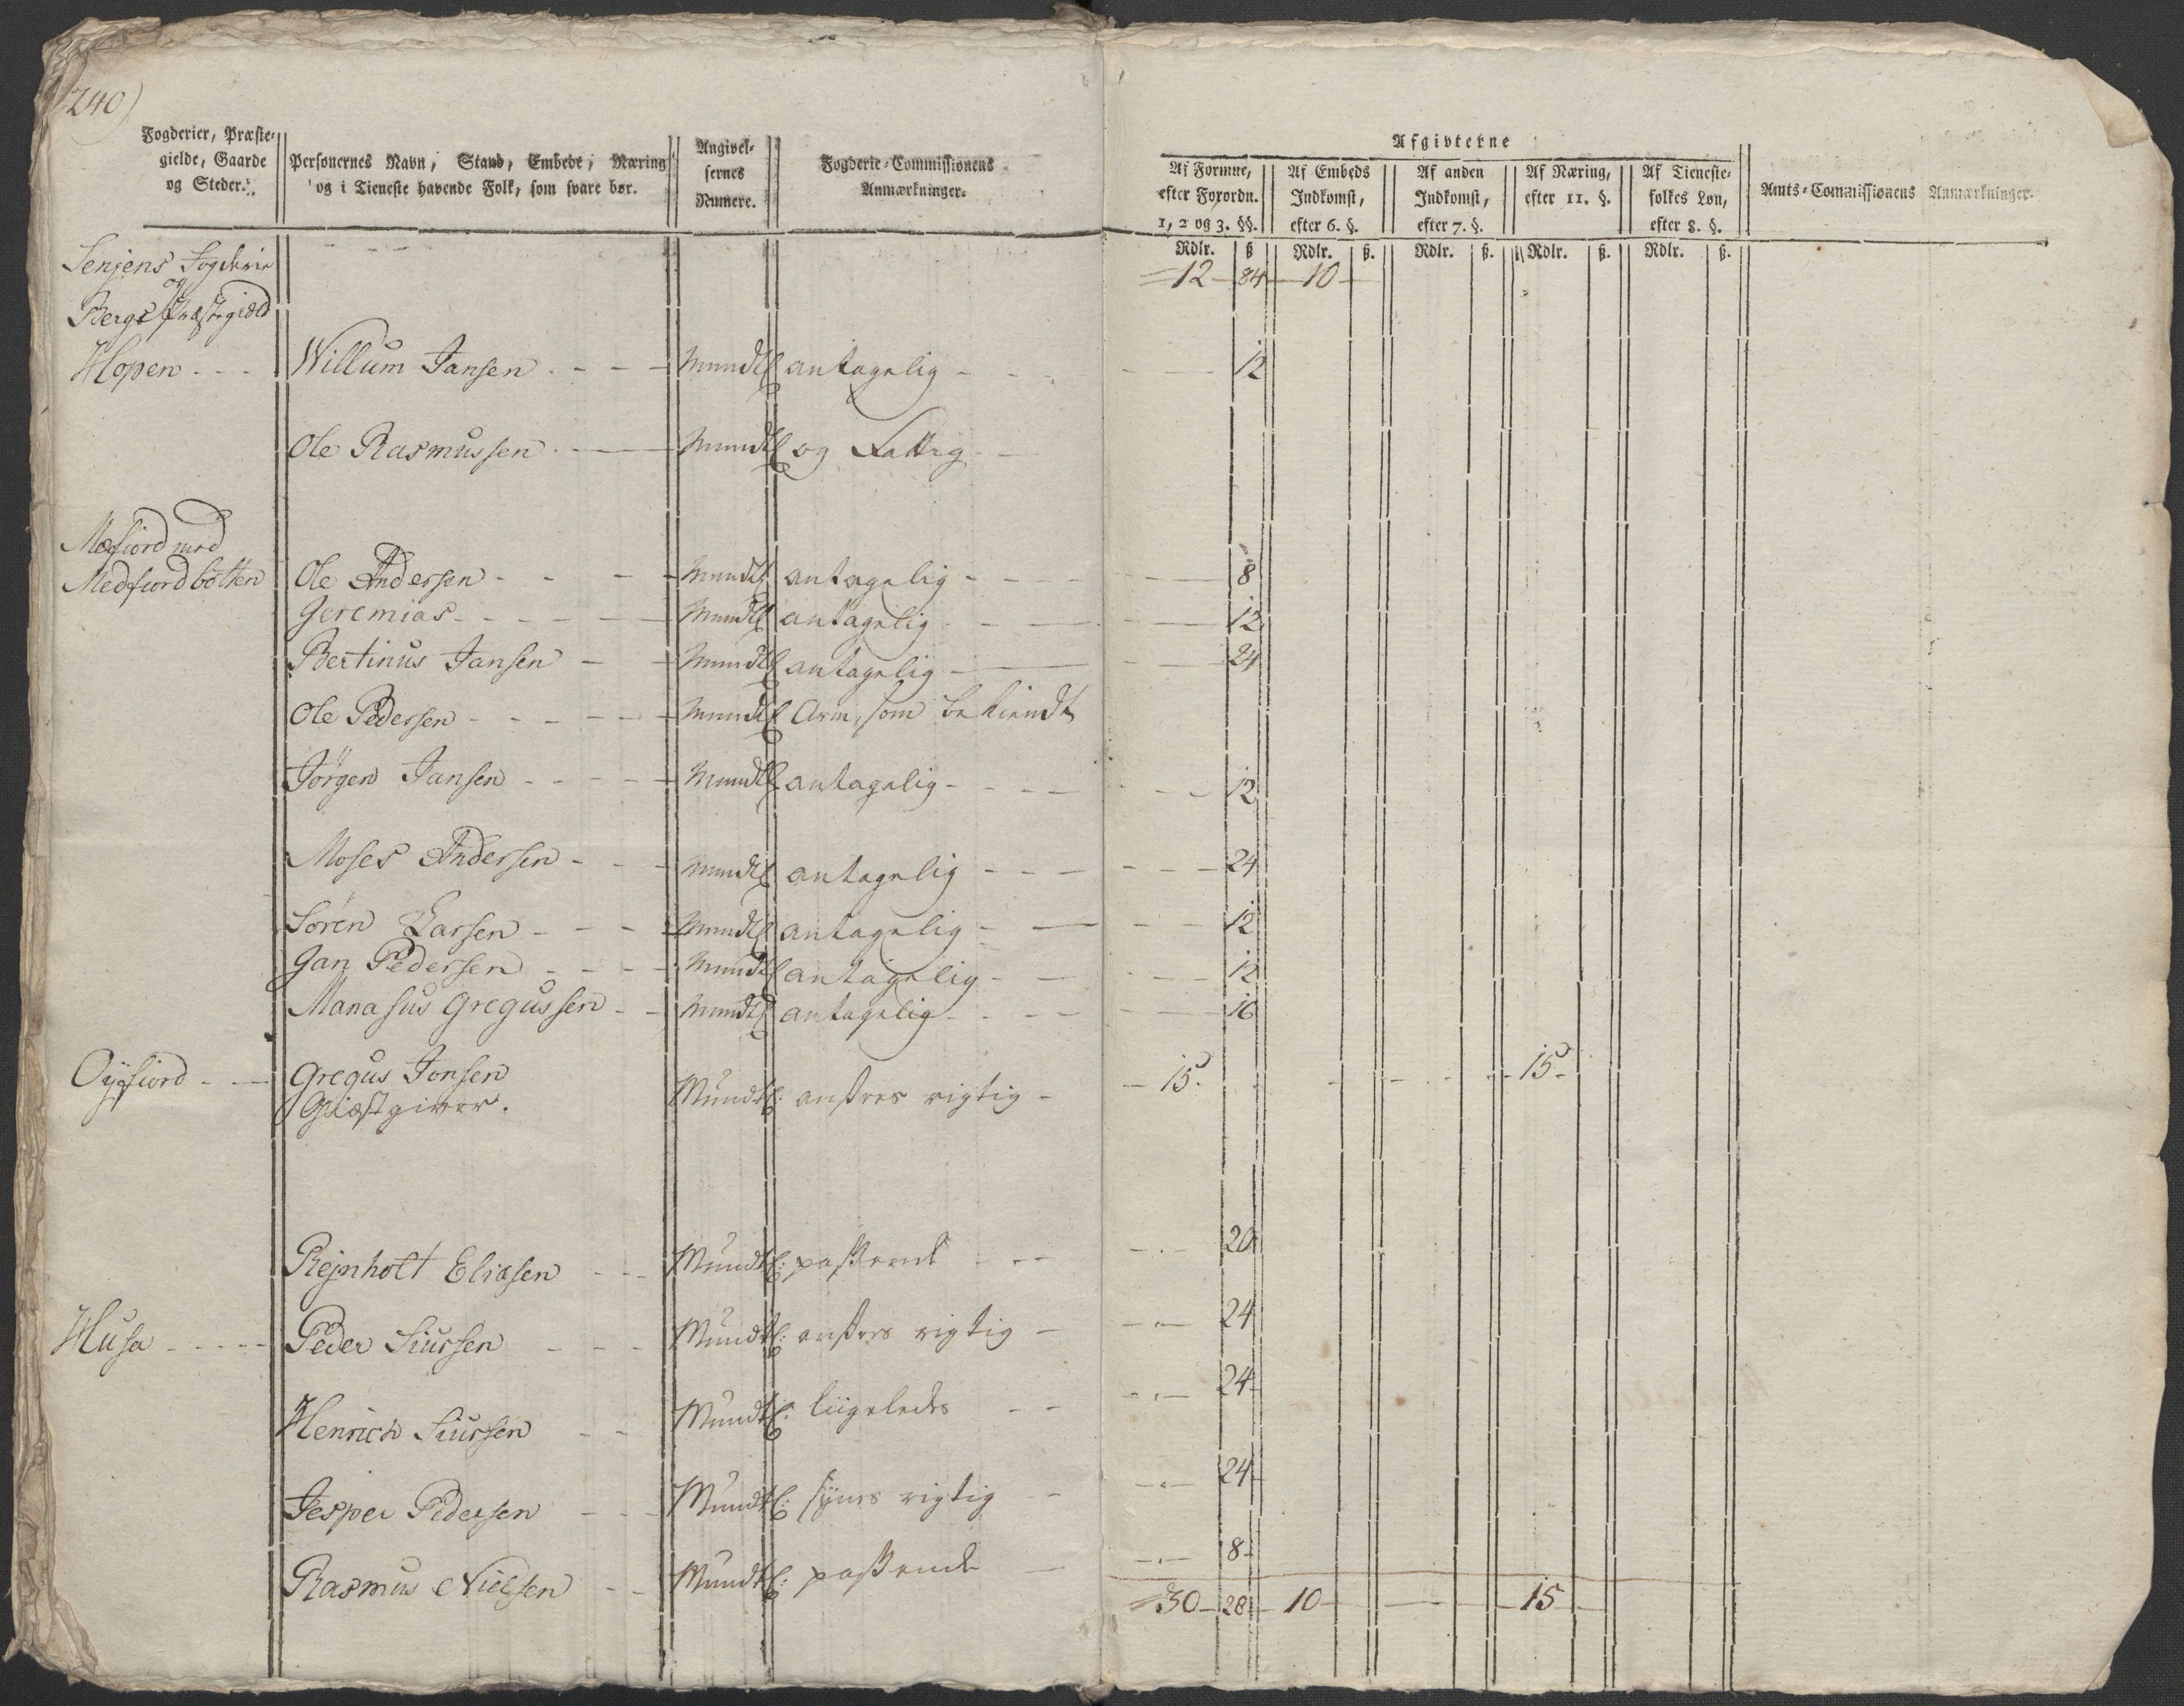 240)
Fogderier, Præste-
gielde, Gaarde
og Steder.
Personernes Navn, Stand, Embede, Næring
og i Tieneste havende Folk, som svare bør.
Angivel-
sernes
Numere.
Fogderie-Commissionens
Anmærkninger.
Afgivterne
Af Formue,
efter Forordn.
1, 2 og 3. §§.
Af Embeds
Indkomst,
efter 6. §.
Af anden
Indkomst,
efter 7. §.
Af Næring,
efter 11. §.
Af Tieneste-
folkes Løn,
efter 8. §.
Amts-Commissionens Anmærkninger.
Rdlr. ß Rdlr. ß. Rdlr. ß. Rdlr. ß. Rdlr. ß.
Senjens Fogderie - - - 12 - 84 - 10 -
og
Bergs Præstegield
Hopen - - - Willum Jansen - - - Mundtl antagelig - - - 12
Ole Rasmussen - - Mundtl og Fattig - -
Mefiord med
Medfiordbotten Ole Andersen - - - Mundtl antagelig - - - 8
Jeremias - - - - Mundtl antagelig - - - 12
Bertinus Jansen - - Mundtl antagelig - - - 24
Ole Pedersen - - - Mundtl Arm, som bekiendt
Jörgen Jansen - - - Mundtl antagelig - - - 12
Moses Andersen - - - Mundtl antagelig - - - 24
Sören Larsen - - - Mundtl antagelig - - - 12
Jan Pedersen - - - Mundtl antagelig - - - 12
Manasus Gregussen - - Mundtl antagelig - - - 16
Oyfiord - - Gregus Jonsen
Giæstgiver. Mundtl: ansees rigtig - - 15. - - - - 15 -
Rejnholt Eliasen - - - Mundtl: passende - - - 20
Husa - - - - Peder Siursen - - - Mundtl: ansees rigtig - - - 24
Henrich Siursen - - Mundtl: liigeledes - - - 24
Jesper Pedersen - - - Mundtl: synes rigtig - - - 24
Rasmus Nielsen - - Mundtl: passende - - 8
30 - 28 - 10 - - - 15 -